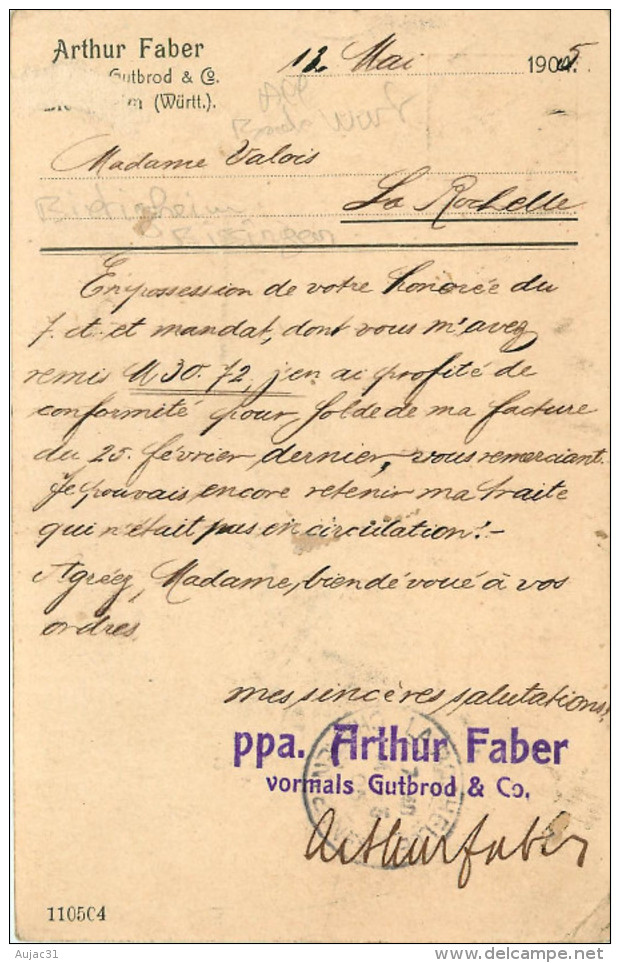 Arthur Faber
Gutbrod & Co.
(Württ.).
12 Mai 1905.
Madame Valois
La Rochelle
Bietigheim
Bissingen
En possession de votre honorée du
7. ct. et mandat, dont vous m'avez
remis M 30.72, j'en ai profité de
conformité pour solde de ma facture
du 25. février dernier, vous remerciant.
Je pouvais encore retenir ma traite
qui n'était pas en circulation! -
Agréez, Madame, bien dévoué à vos
ordres
mes sincères salutations!
ppa. Arthur Faber
vormals Gutbrod & Co.
Arthur Faber
110504
Aujac31
delcampe.net